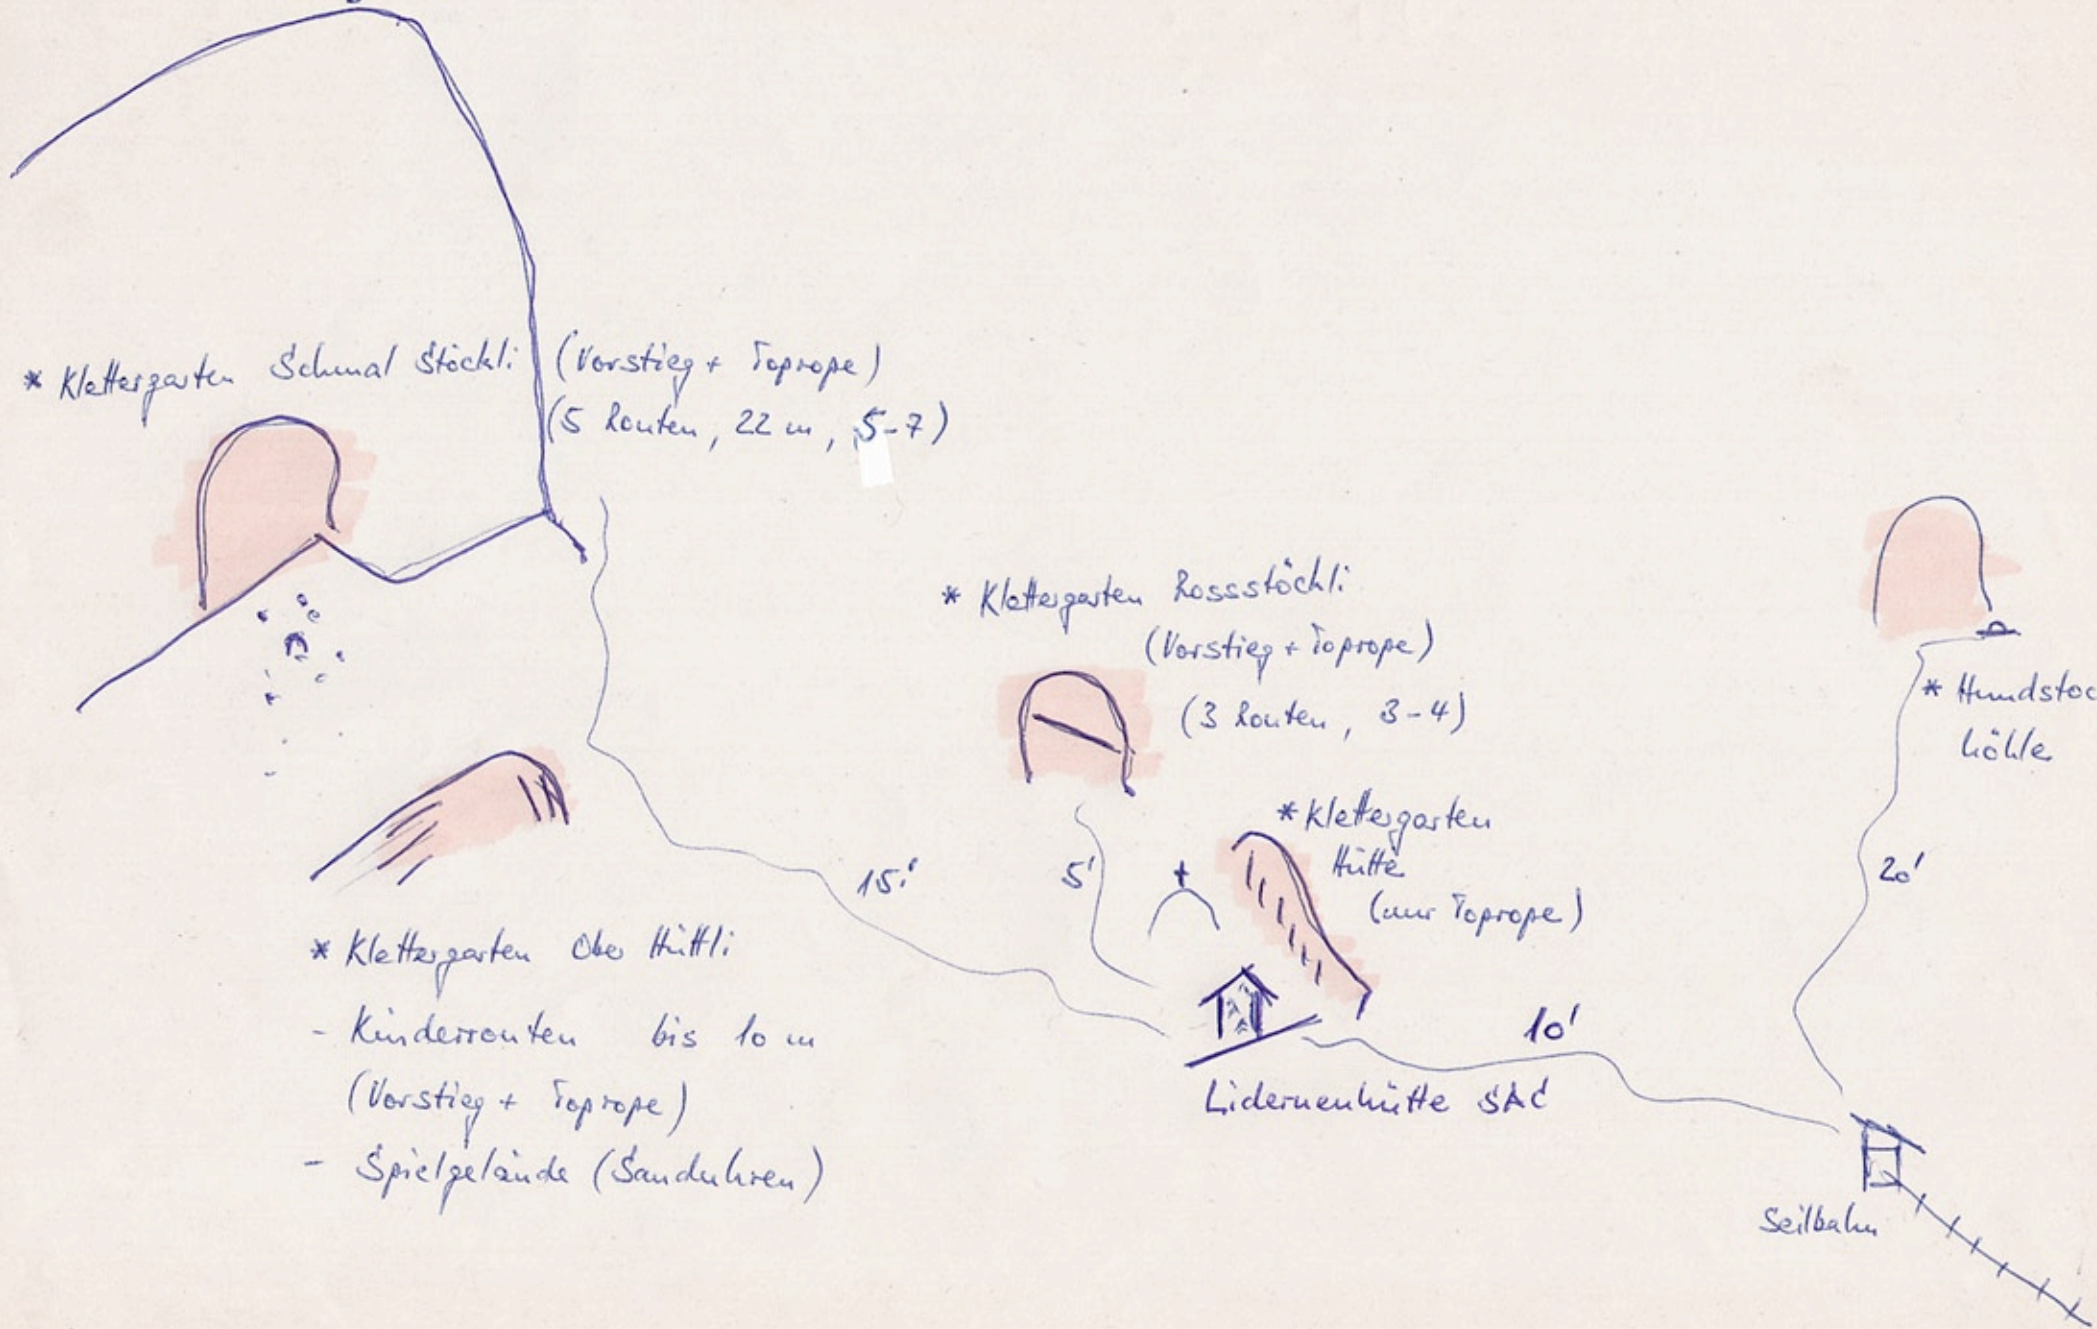 * Klettergarten Schmal Stöckli (Vorstieg + Toprope)
(5 Routen, 22 m, 5-7)
* Klettergarten Rossstöckli
(Vorstieg + Toprope)
(3 Routen, 3-4)
* Hundstoc
höhle
* Klettergarten
Hütte
(nur Toprope)
15'
5'
20'
* Klettergarten Ober Hüttli
- Kinderrouten bis 10 m
(Vorstieg + Toprope)
- Spielgelände (Sanduhren)
10'
Lidernenhütte SAC
Seilbahn